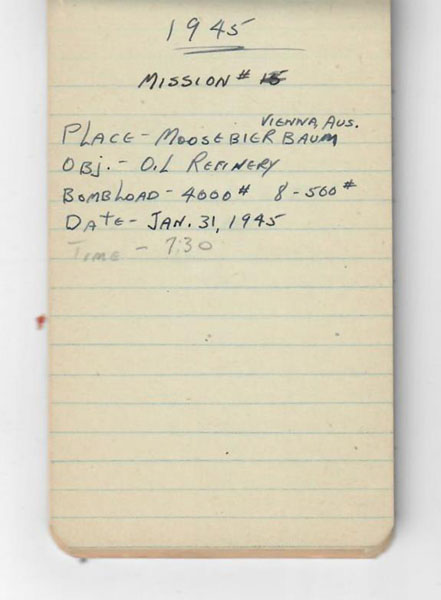 1945
MISSION # 15
VIENNA, AUS.
PLACE - MOOSEBIERBAUM
OBJ. - OIL REFINERY
BOMBLOAD - 4000# 8-500#
DATE - JAN. 31, 1945
TIME - 7:30